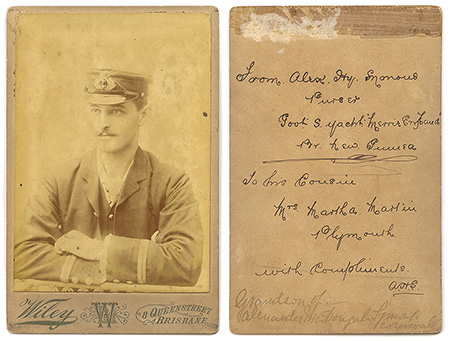 Wiley
W
8 QUEEN STREET
BRISBANE.
From Alex. Hy.
Purser
Govt S. Yacht "Merrie England"
Br. New Guinea
To his Cousin
Mrs Martha Martin
Plymouth
with Compliments.
Grandson of
Alexander
Cornwall